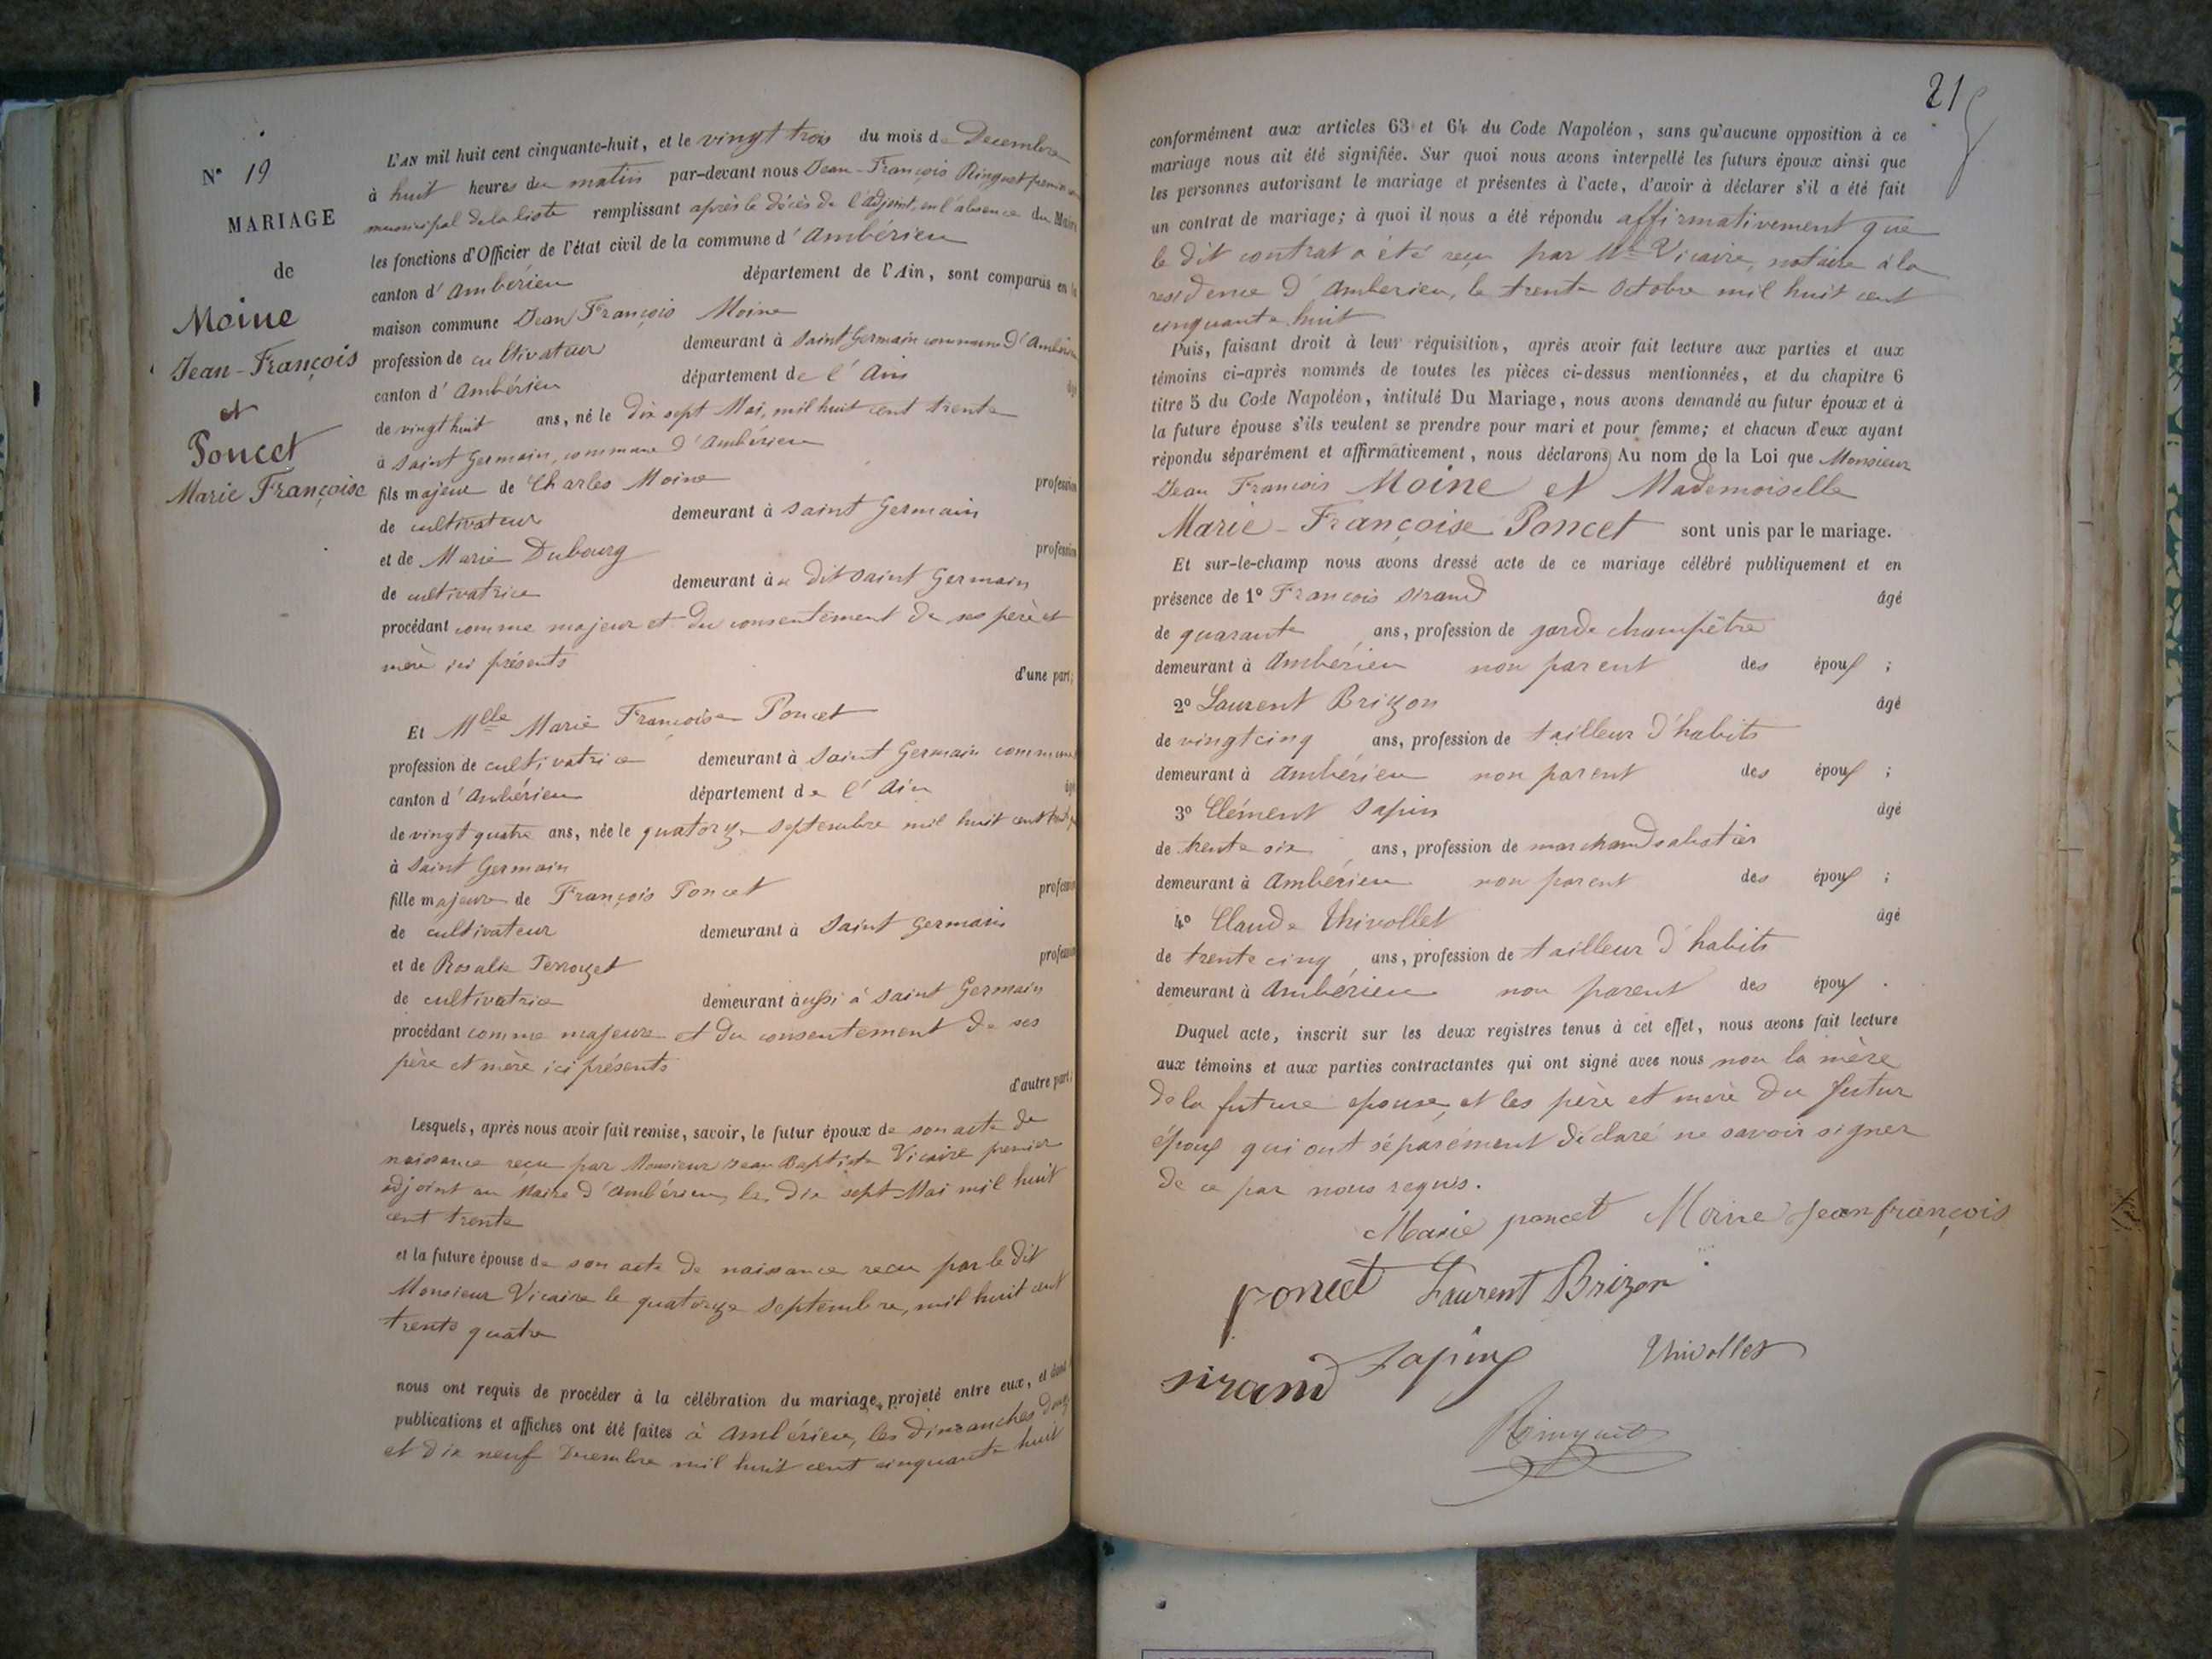 N° 19
MARIAGE
de
Moine
Jean-François
et
Poncet
Marie Françoise
L'AN mil huit cent cinquante-huit, et le vingt trois du mois de Decembre
à huit heures du matin par-devant nous Jean-François Ringuet premier
municipal de la liste remplissant après le décès de l'adjoint, en l'absence du Maire
les fonctions d'Officier de l'état civil de la commune d'Ambérieu
canton d'Ambérieu département de l'Ain, sont comparus en la
maison commune Jean François Moine
profession de cultivateur demeurant à Saint Germain commune d'Ambérieu
canton d'Ambérieu département de l'Ain âgé
de vingt huit ans, né le dix sept Mai, mil huit cent trente
à Saint Germain, commune d'Ambérieu
fils majeur de Charles Moine profession
de cultivateur demeurant à Saint Germain
et de Marie Dubourg profession
de cultivatrice demeurant au dit Saint Germain
procédant comme majeur et du consentement de ses père et
mère ici présents
d'une part;
Et Mlle Marie Françoise Poncet
profession de cultivatrice demeurant à Saint Germain commune
canton d'Ambérieu département de l'Ain âgé
de vingt quatre ans, née le quatorze septembre mil huit cent
à Saint Germain
fille majeure de François Poncet profession
de cultivateur demeurant à Saint Germain
et de Rosalie Perrozet profession
de cultivatrice demeurant aussi à Saint Germain
procédant comme majeure et du consentement de ses
père et mère ici présents
d'autre part;
Lesquels, après nous avoir fait remise, savoir, le futur époux de son acte de
naissance reçu par Monsieur Jean Baptiste Vicaire premier
adjoint au Maire d'Ambérieu, le dix sept Mai mil huit
cent trente
et la future épouse de son acte de naissance reçu par le dit
Monsieur Vicaire le quatorze Septembre, mil huit cent
trente quatre
nous ont requis de procéder à la célébration du mariage projeté entre eux, et dont
publications et affiches ont été faites à Ambérieu, les dimanches douze
et dix neuf Decembre mil huit cent cinquante huit
21
conformément aux articles 63 et 64 du Code Napoléon, sans qu'aucune opposition à ce
mariage nous ait été signifiée. Sur quoi nous avons interpellé les futurs époux ainsi que
les personnes autorisant le mariage et présentes à l'acte, d'avoir à déclarer s'il a été fait
un contrat de mariage; à quoi il nous a été répondu affirmativement que
le dit contrat a été reçu par Me Vicaire, notaire à la
residence d'Amberieu, le trente Octobre mil huit cent
cinquante huit
Puis, faisant droit à leur réquisition, après avoir fait lecture aux parties et aux
témoins ci-après nommés de toutes les pièces ci-dessus mentionnées, et du chapitre 6
titre 5 du Code Napoléon, intitulé Du Mariage, nous avons demandé au futur époux et à
la future épouse s'ils veulent se prendre pour mari et pour femme; et chacun d'eux ayant
répondu séparément et affirmativement, nous déclarons Au nom de la Loi que Monsieur
Jean François Moine et Mademoiselle
Marie-Françoise Poncet sont unis par le mariage.
Et sur-le-champ nous avons dressé acte de ce mariage célébré publiquement et en
présence de 1° François Sirand âgé
de quarante ans, profession de garde champêtre
demeurant à Ambérieu non parent des époux ;
2° Laurent Brizon âgé
de vingt cinq ans, profession de tailleur d'habits
demeurant à Ambérieu non parent des époux ;
3° Clément Sapin âgé
de trente six ans, profession de marchand sabotier
demeurant à Ambérieu non parent des époux ;
4° Claude Thivollet âgé
de trente cinq ans, profession de tailleur d'habits
demeurant à Ambérieu non parent des époux .
Duquel acte, inscrit sur les deux registres tenus à cet effet, nous avons fait lecture
aux témoins et aux parties contractantes qui ont signé avec nous non la mère
de la future epouse, et les père et mère du futur
époux qui ont séparément déclaré ne savoir signer
de ce par nous requis.
Marie poncet Moine Jean françois
poncet Laurent Brizon
sirand Sapin Thivollet
Ringuet